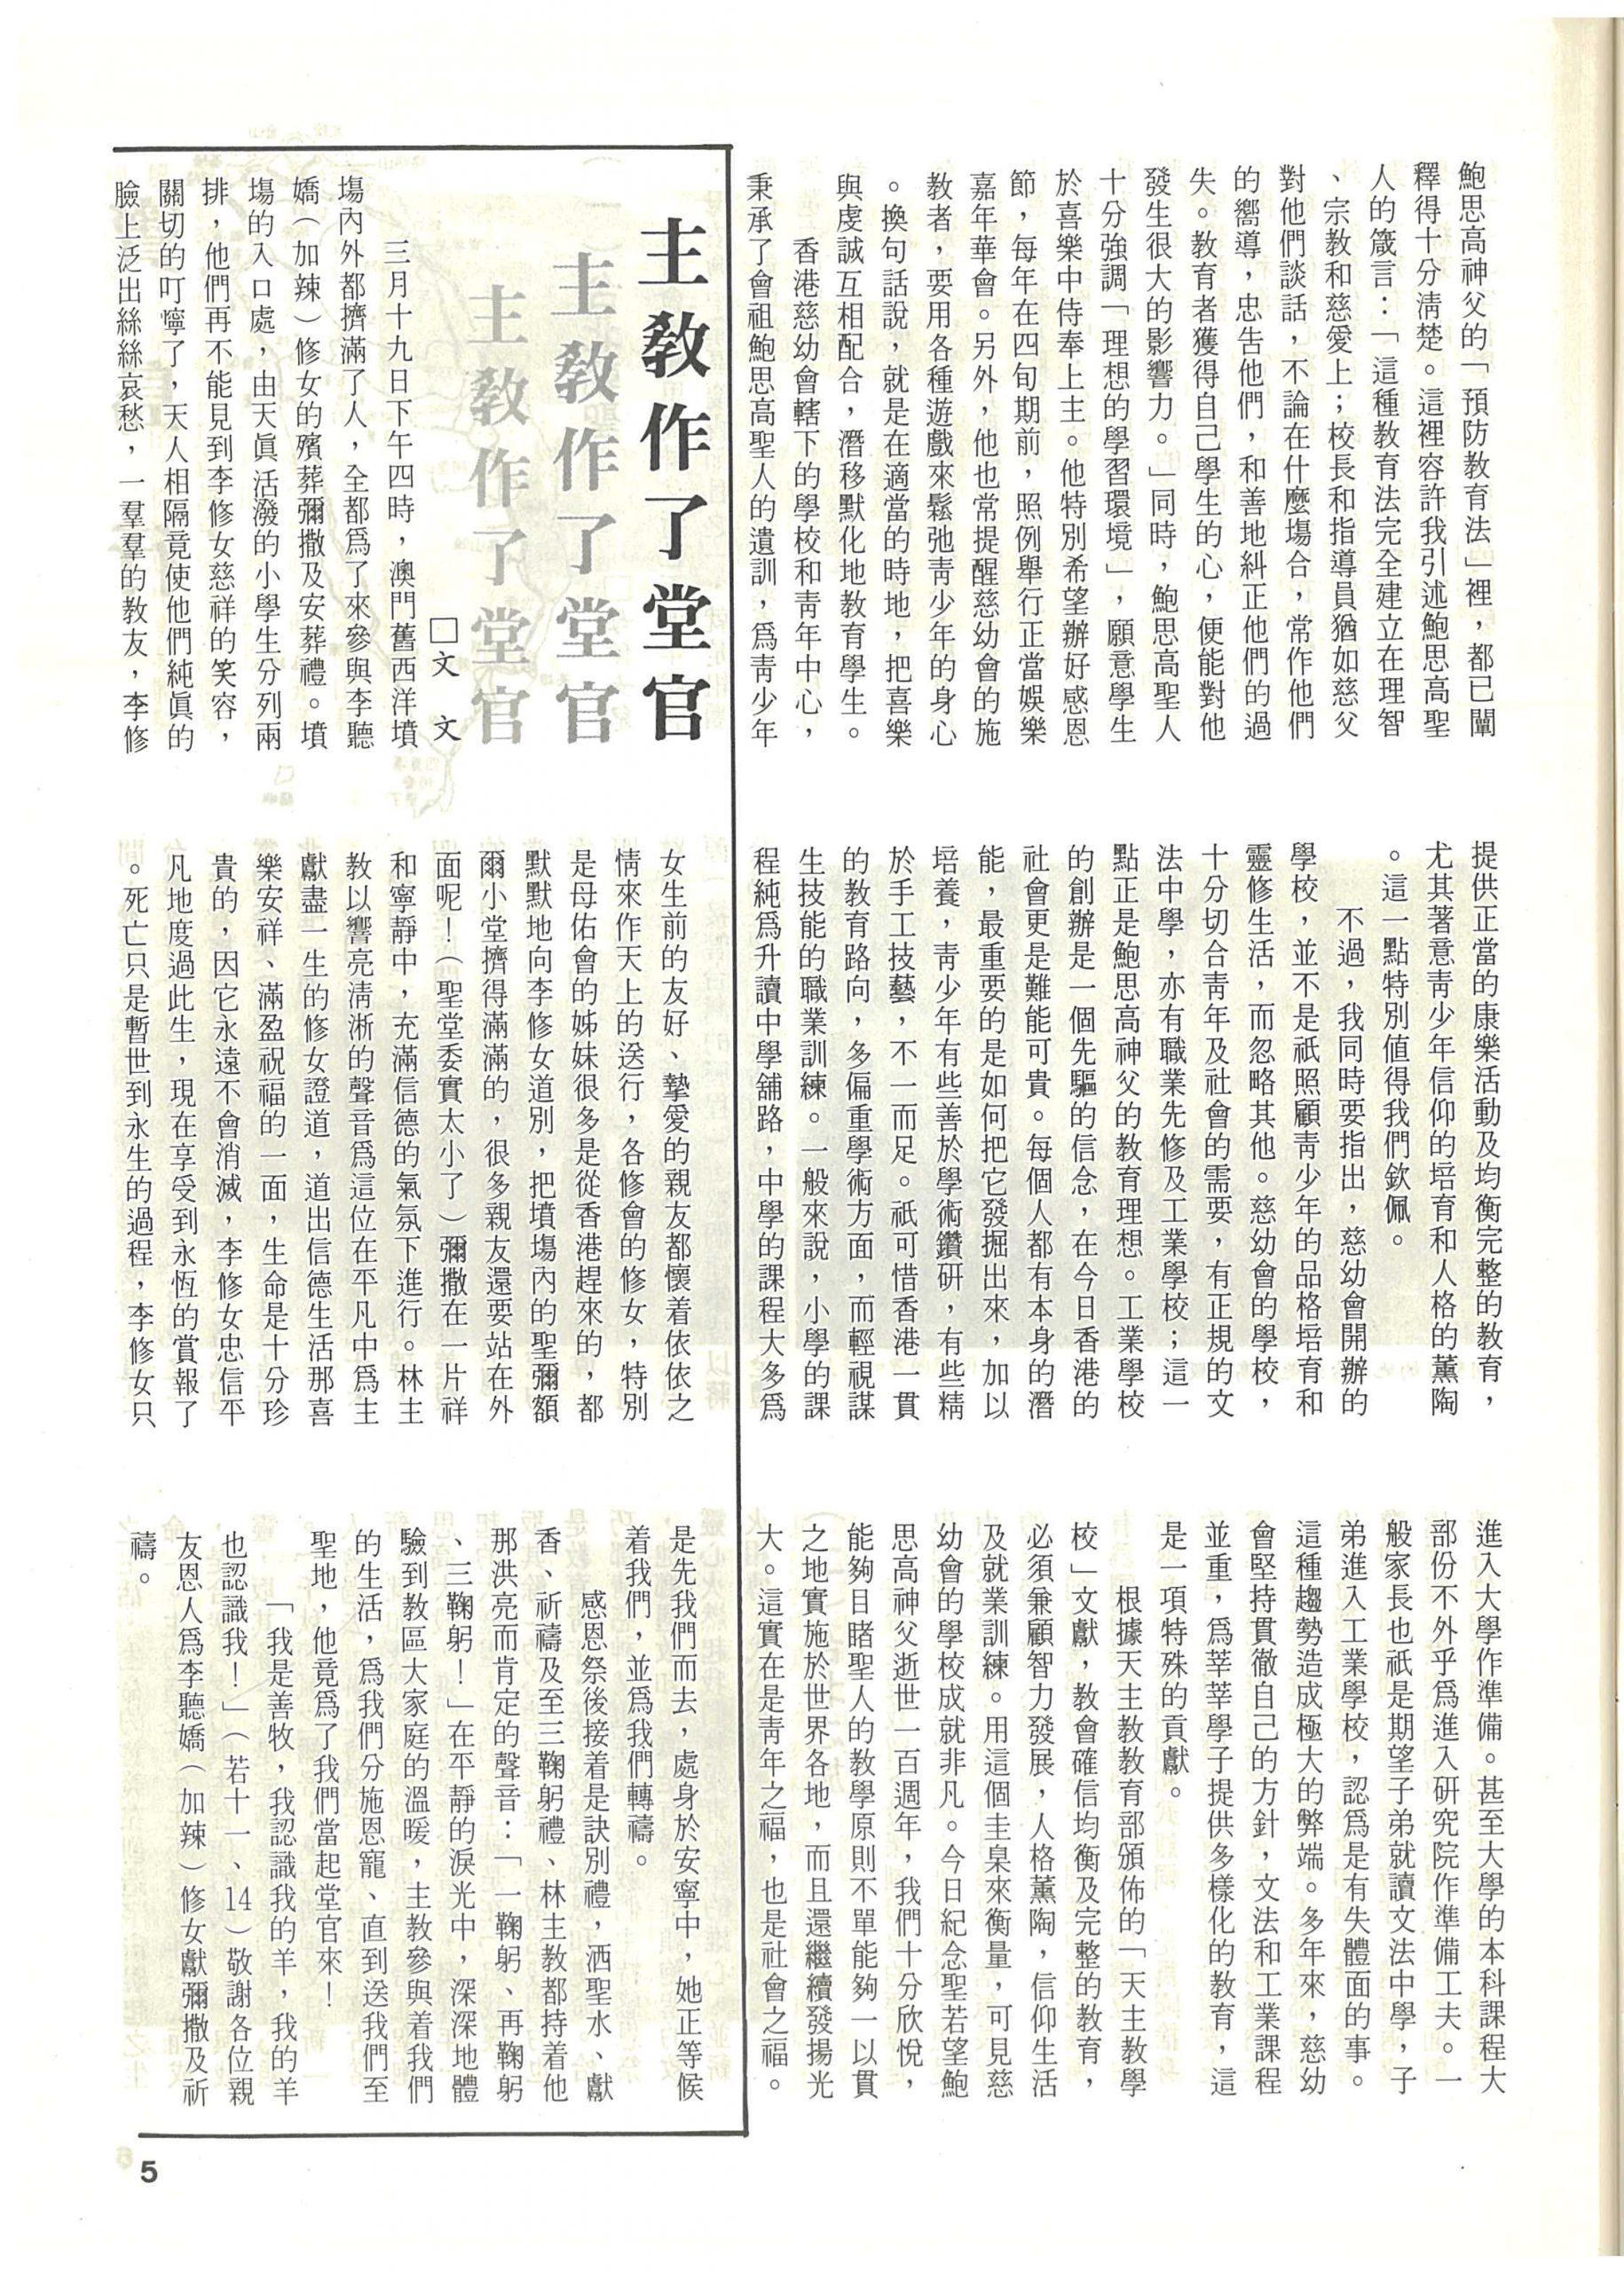 鮑思高神父的「預防教育法」裡，都已闡
釋得十分淸楚。這裡容許我引述鮑思高聖
人的箴言：「這種教育法完全建立在理智
、宗教和慈愛上；校長和指導員猶如慈父
對他們談話，不論在什麼塲合，常作他們
的嚮導，忠告他們，和善地糾正他們的過
失。教育者獲得自己學生的心，便能對他
發生很大的影響力。」同時，鮑思高聖人
十分強調「理想的學習環境」，願意學生
於喜樂中侍奉上主。他特別希望辦好感恩
節，每年在四旬期前，照例舉行正當娛樂
嘉年華會。另外，他也常提醒慈幼會的施
教者，要用各種遊戲來鬆弛靑少年的身心
。換句話說，就是在適當的時地，把喜樂
與虔誠互相配合，潛移默化地教育學生。
香港慈幼會轄下的學校和靑年中心，
秉承了會祖鮑思高聖人的遺訓，爲靑少年
提供正當的康樂活動及均衡完整的教育，
尤其著意靑少年信仰的培育和人格的薰陶
。這一點特別值得我們欽佩。
不過，我同時要指出，慈幼會開辦的
學校，並不是祇照顧靑少年的品格培育和
靈修生活，而忽略其他。慈幼會的學校，
十分切合靑年及社會的需要，有正規的文
法中學，亦有職業先修及工業學校；這一
點正是鮑思高神父的教育理想。工業學校
的創辦是一個先驅的信念，在今日香港的
社會更是難能可貴。每個人都有本身的潛
能，最重要的是如何把它發掘出來，加以
培養，靑少年有些善於學術鑽研，有些精
於手工技藝，不一而足。祇可惜香港一貫
的教育路向，多偏重學術方面，而輕視謀
生技能的職業訓練。一般來說，小學的課
程純爲升讀中學舖路，中學的課程大多爲
進入大學作準備。甚至大學的本科課程大
部份不外乎爲進入研究院作準備工夫。一
般家長也祇是期望子弟就讀文法中學，子
弟進入工業學校，認爲是有失體面的事。
這種趨勢造成極大的弊端。多年來，慈幼
會堅持貫徹自己的方針，文法和工業課程
並重，爲莘莘學子提供多樣化的教育，這
是一項特殊的貢獻。
根據天主教教育部頒佈的「天主教學
校」文獻，教會確信均衡及完整的教育，
必須兼顧智力發展，人格薰陶，信仰生活
及就業訓練。用這個圭臬來衡量，可見慈
幼會的學校成就非凡。今日紀念聖若望鮑
思高神父逝世一百週年，我們十分欣悅，
能夠目睹聖人的教學原則不單能夠一以貫
之地實施於世界各地，而且還繼續發揚光
大。這實在是靑年之福，也是社會之福。
主教作了堂官
主教作了堂官
主教作了堂官
□文　文
三月十九日下午四時，澳門舊西洋墳
塲內外都擠滿了人，全都爲了來參與李聽
嬌（加辣）修女的殯葬彌撒及安葬禮。墳
塲的入口處，由天眞活潑的小學生分列兩
排，他們再不能見到李修女慈祥的笑容，
關切的叮嚀了，天人相隔竟使他們純眞的
臉上泛出絲絲哀愁，一羣羣的教友，李修
女生前的友好、摯愛的親友都懷着依依之
情來作天上的送行，各修會的修女，特別
是母佑會的姊妹很多是從香港趕來的，都
默默地向李修女道別，把墳塲內的聖彌額
爾小堂擠得滿滿的，很多親友還要站在外
面呢！（聖堂委實太小了）彌撒在一片祥
和寧靜中，充滿信德的氣氛下進行。林主
教以響亮淸淅的聲音爲這位在平凡中爲主
獻盡一生的修女證道，道出信德生活那喜
樂安祥、滿盈祝福的一面，生命是十分珍
貴的，因它永遠不會消滅，李修女忠信平
凡地度過此生，現在享受到永恆的賞報了
。死亡只是暫世到永生的過程，李修女只
是先我們而去，處身於安寧中，她正等候
着我們，並爲我們轉禱。
感恩祭後接着是訣別禮，洒聖水、獻
香、祈禱及至三鞠躬禮、林主教都持着他
那洪亮而肯定的聲音：「一鞠躬、再鞠躬
、三鞠躬！」在平靜的淚光中，深深地體
驗到教區大家庭的溫暖，主教參與着我們
的生活，爲我們分施恩寵、直到送我們至
聖地，他竟爲了我們當起堂官來！
「我是善牧，我認識我的羊，我的羊
也認識我！」（若十一、14）敬謝各位親
友恩人爲李聽嬌（加辣）修女獻彌撒及祈
禱。
5